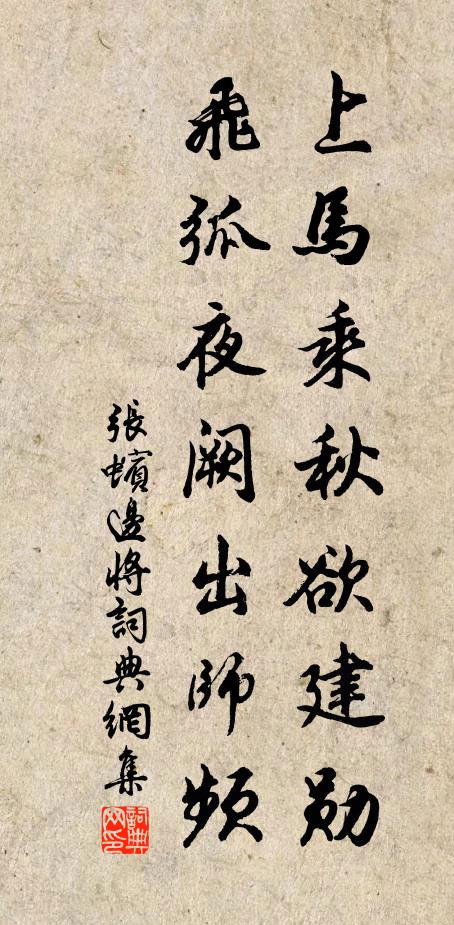 上馬乘秋欲建勛
飛弧夜闕出師頻
張蠙邊將詞典網集
詞典网印